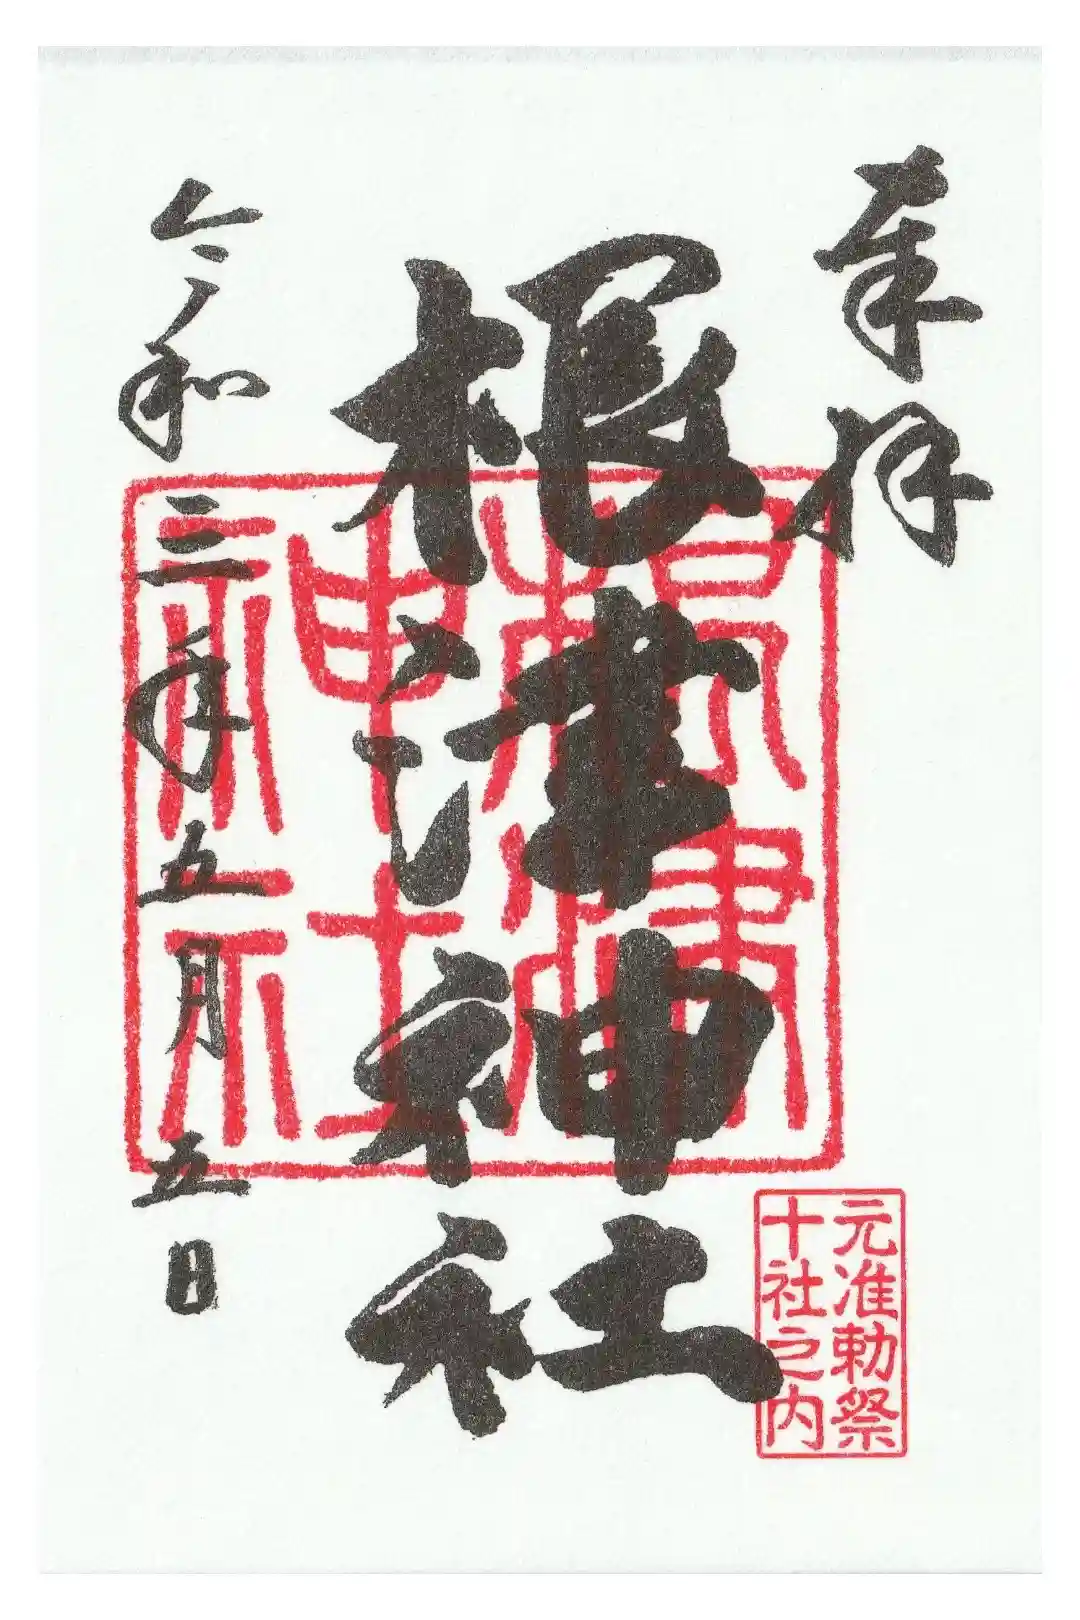 奉拝
根津神社
令和三年五月五日
根津
神社
元准勅祭
十社之内